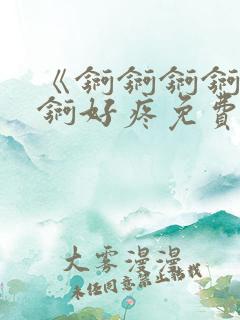 《锕锕锕锕
锕好疼免费
大雾漫漫
未经同意禁止转载